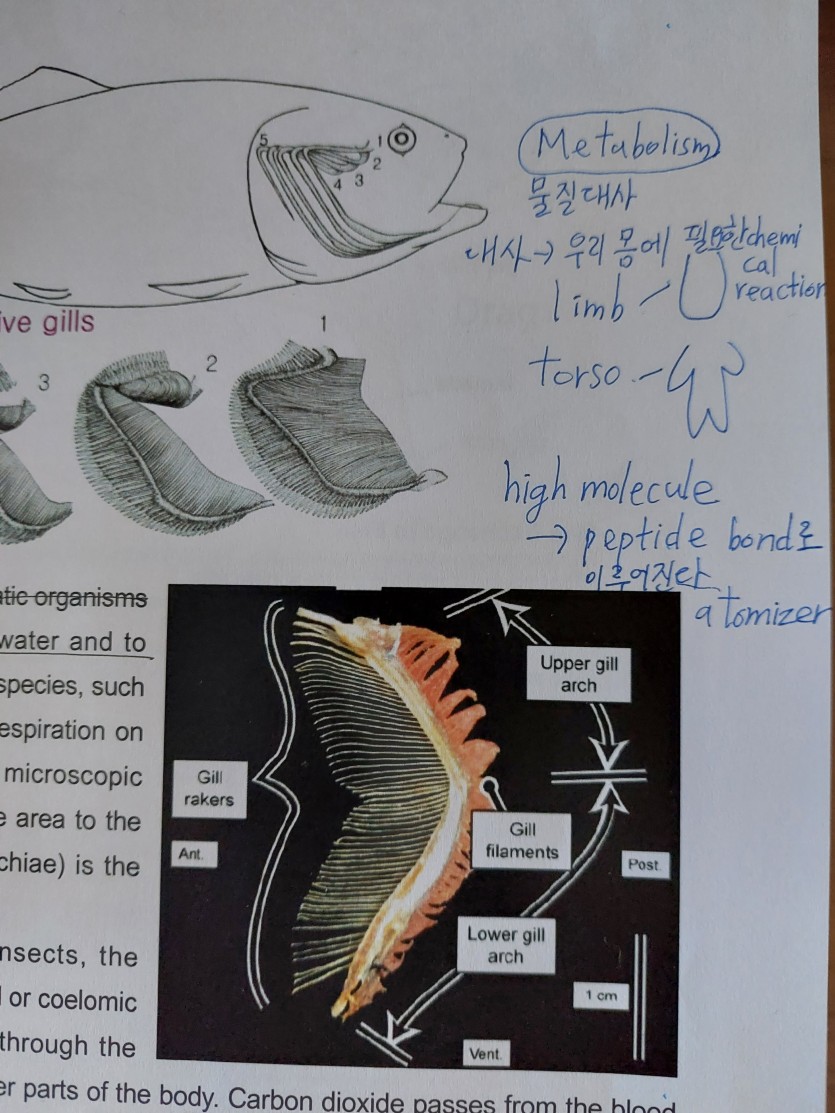 5
1
2
4 3
Metabolism
물질대사
대사→ 우리 몸에 필요한 chemi
cal
reaction
limb
ive gills
1
3
2
torso
high molecule
→ peptide bond로
이루어진다
atomizer
atic organisms
water and to
species, such
espiration on
microscopic
e area to the
chiae) is the
nsects, the
l or coelomic
through the
er parts of the body. Carbon dioxide passes from the blood
Upper gill
arch
Gill
rakers
Gill
filaments
Ant.
Post.
Lower gill
arch
1 cm
Vent.